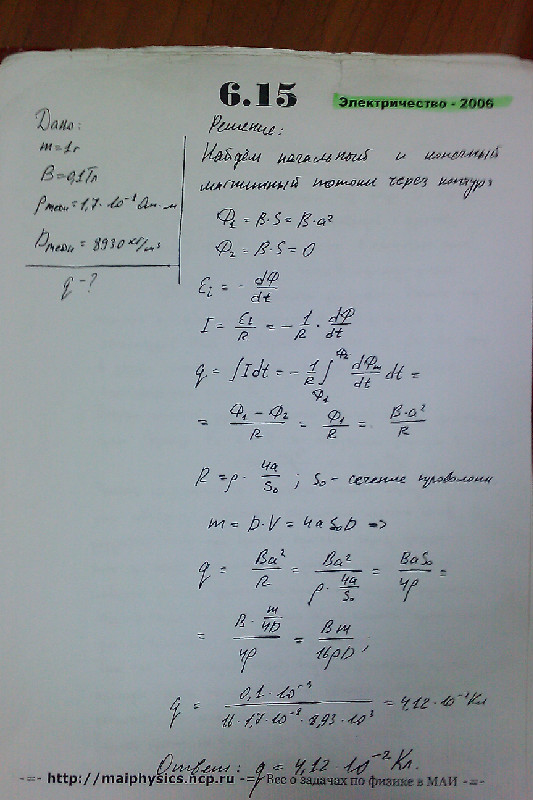 6.15
Электричество - 2006
Дано:
m=1г
B=0,1Тл
ρмеди=1,7·10⁻⁸Ом·м
Dмеди=8930 кг/м³
q-?
Решение:
Найдём начальный и конечный
магнитный потоки через контур:
Ф₁=B·S=B·a²
Ф₂=B·S=0
εi = - dФ/dt
I = εi/R = - 1/R · dФ/dt
q = ∫Idt = - 1/R ∫Ф₁Ф₂ dФm/dt dt =
= Ф₁-Ф₂/R = Ф₁/R = B·a²/R
R=ρ· 4a/S₀ ; S₀- сечение проволоки
m = D·V = 4aS₀D =>
q = Ba²/R = Ba²/ρ·4a/S₀ = BaS₀/4ρ =
= B·m/4D/4ρ = Bm/16ρD ;
q = 0,1·10⁻³/16·1,7·10⁻⁸·8,93·10³ = 4,12·10⁻²Кл
Ответ: q=4,12·10⁻²Кл.
-=- http://maiphysics.ncp.ru -=- Все о задачах по физике в МАИ -=-